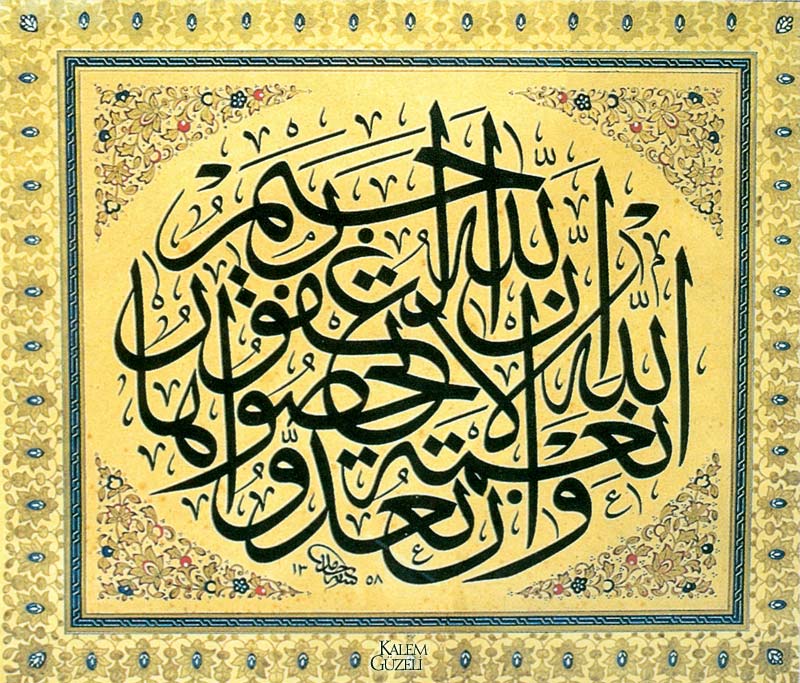 وان تعدوا نعمة الله لا تحصوها ان الله لغفور رحيم
كتبه حامد
١٣٥٨
KALEM
GÜZELİ